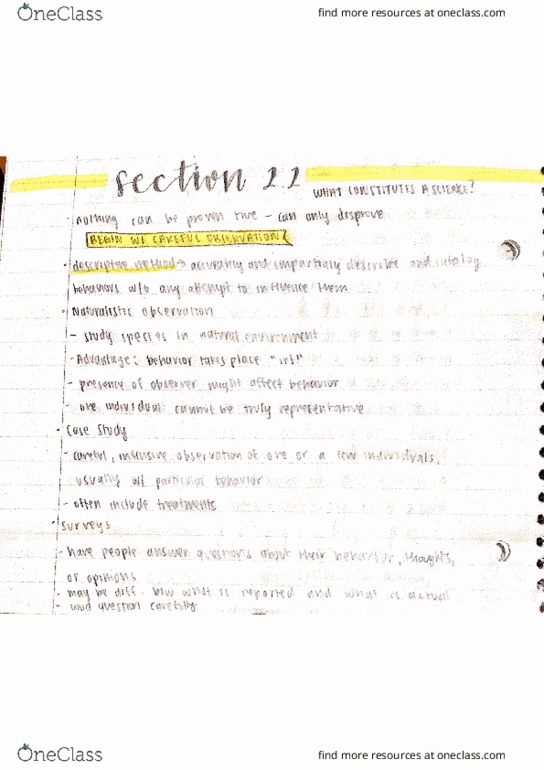 OneClass
find more resources at oneclass.com
section 2.2
WHAT CONSTITUTES A SCIENCE?
· nothing can be proven true – can only disprove
BEGIN W/ CAREFUL OBSERVATION
· descriptive method → accurately and impartially describe and catalog
behaviors w/o any attempt to influence them
· Naturalistic observation
– study species in natural environment
– Advantage: behavior takes place "irl!"
– presence of observer might affect behavior
– one individual cannot be truly representative
· case study
– careful, intensive observation of one or a few individuals,
usually w/ particular behavior
– often include treatments
· surveys
– have people answer questions about their behavior, thoughts,
or opinions
– may be diff. btw what is reported and what is actual
– word question carefully
OneClass
find more resources at oneclass.com